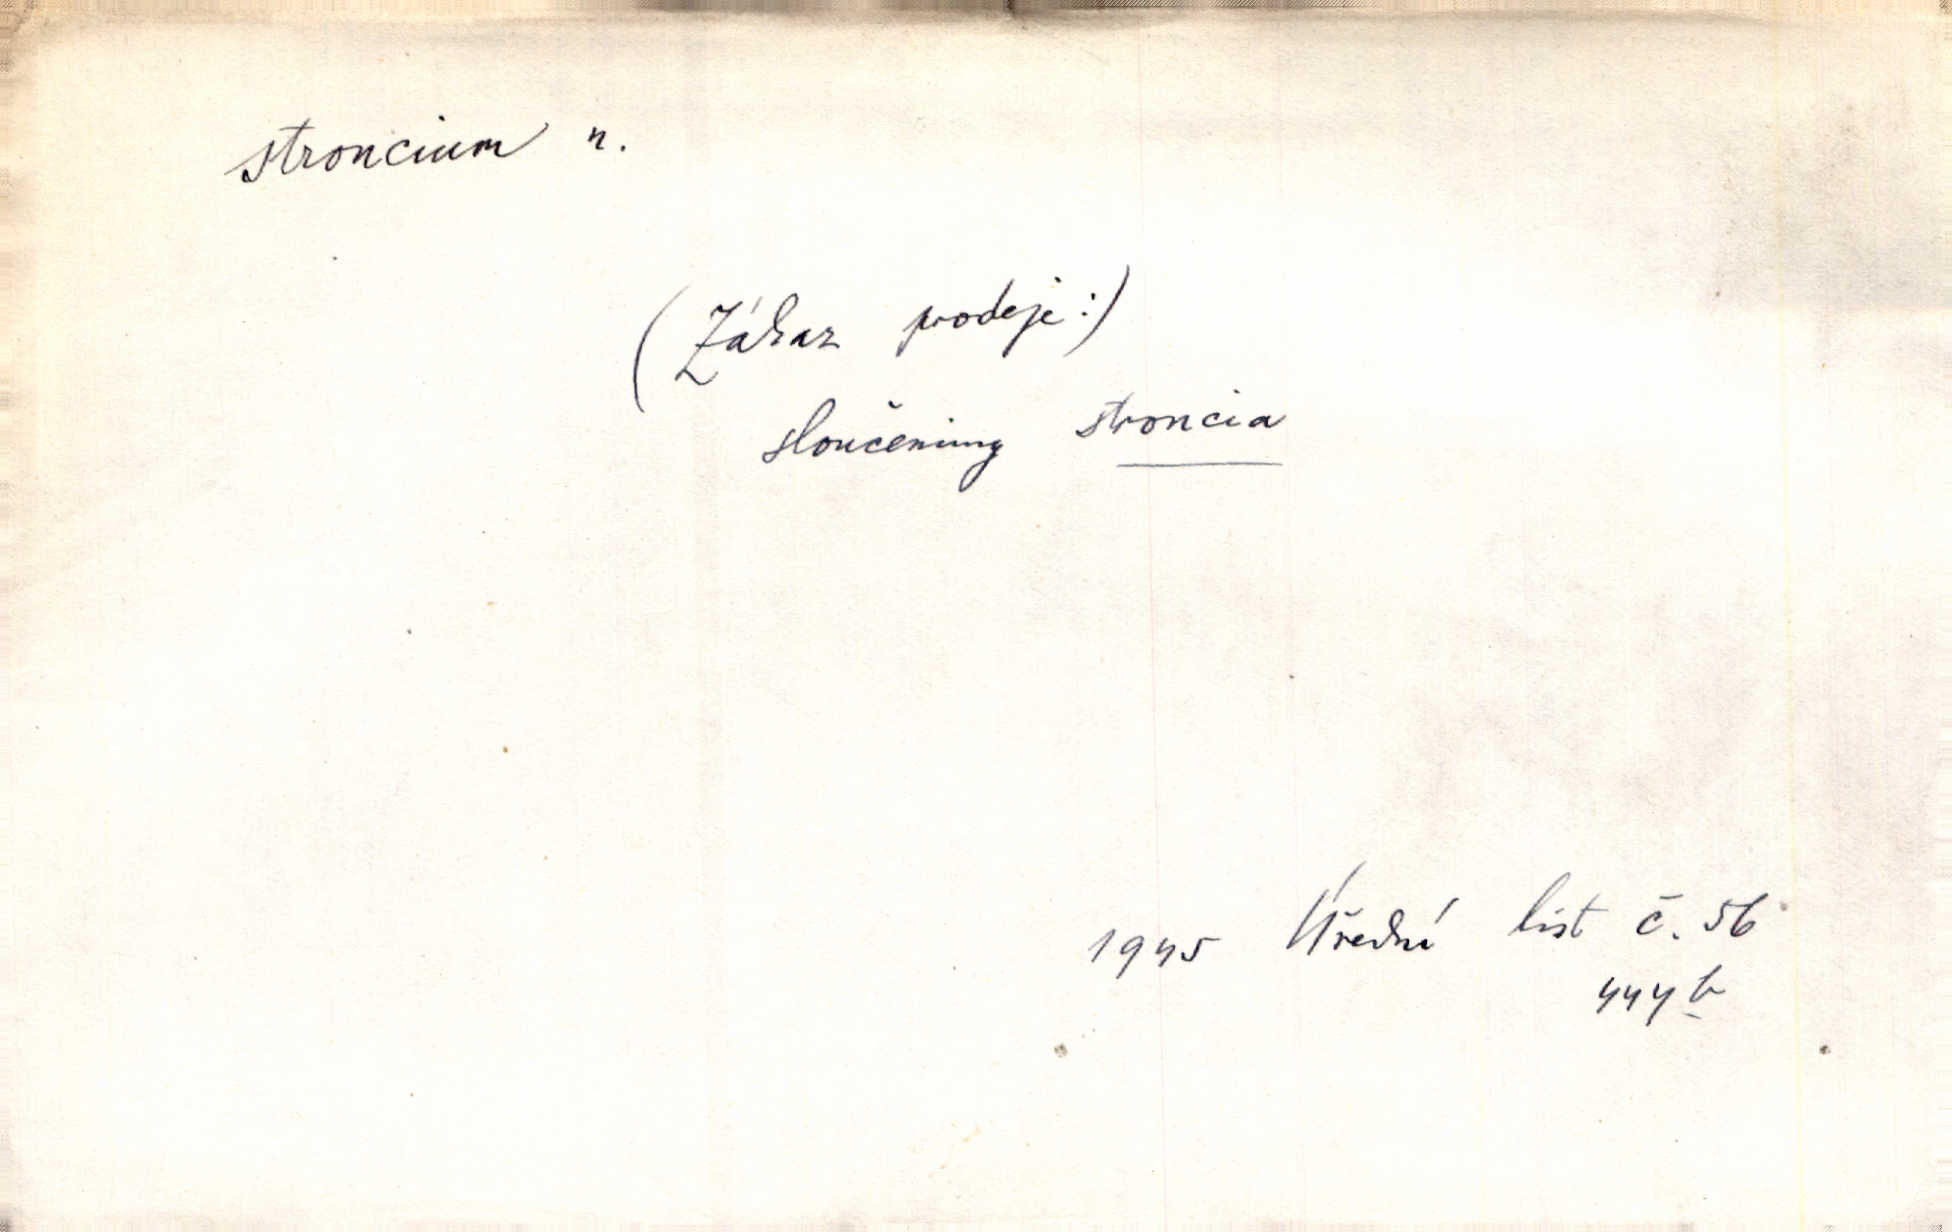 stroncium n.
(Zákaz prodeje:)
sloučeniny stroncia
1945 Úřední list č. 56
444 b